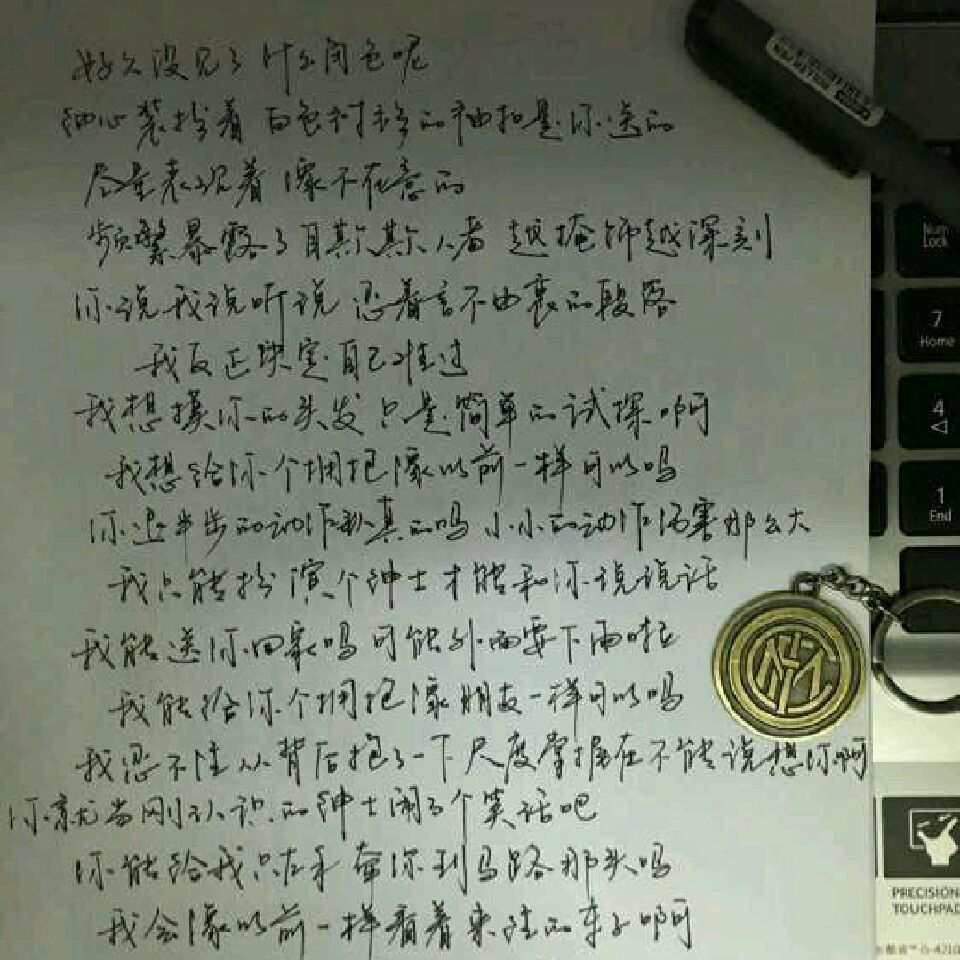 好久没见了 什么角色呢
细心装扮着 白色衬衫的袖扣是你送的
尽量表现着 像不在意的
频繁暴露了自欺欺人者 越掩饰越深刻
你说我说听说 忍着言不由衷的段落
我反正决定自己难过
我想摸你的头发 只是简单的试探啊
我想给你个拥抱 像以前一样可以吗
你退半步的动作认真的吗 小小的动作伤害那么大
我只能扮演个绅士 才能和你说说话
我能送你回家吗 可能外面要下雨啦
我能给你个拥抱 像朋友一样可以吗
我忍不住从背后抱了一下 尺度掌握在不能说想你啊
你就当刚认识的绅士闹了个笑话吧
你能给我只左手 牵你到马路那头吗
我会像以前一样看着来往的车子啊
Num Lock
7 Home
4
1 End
PRECISION TOUCHPAD